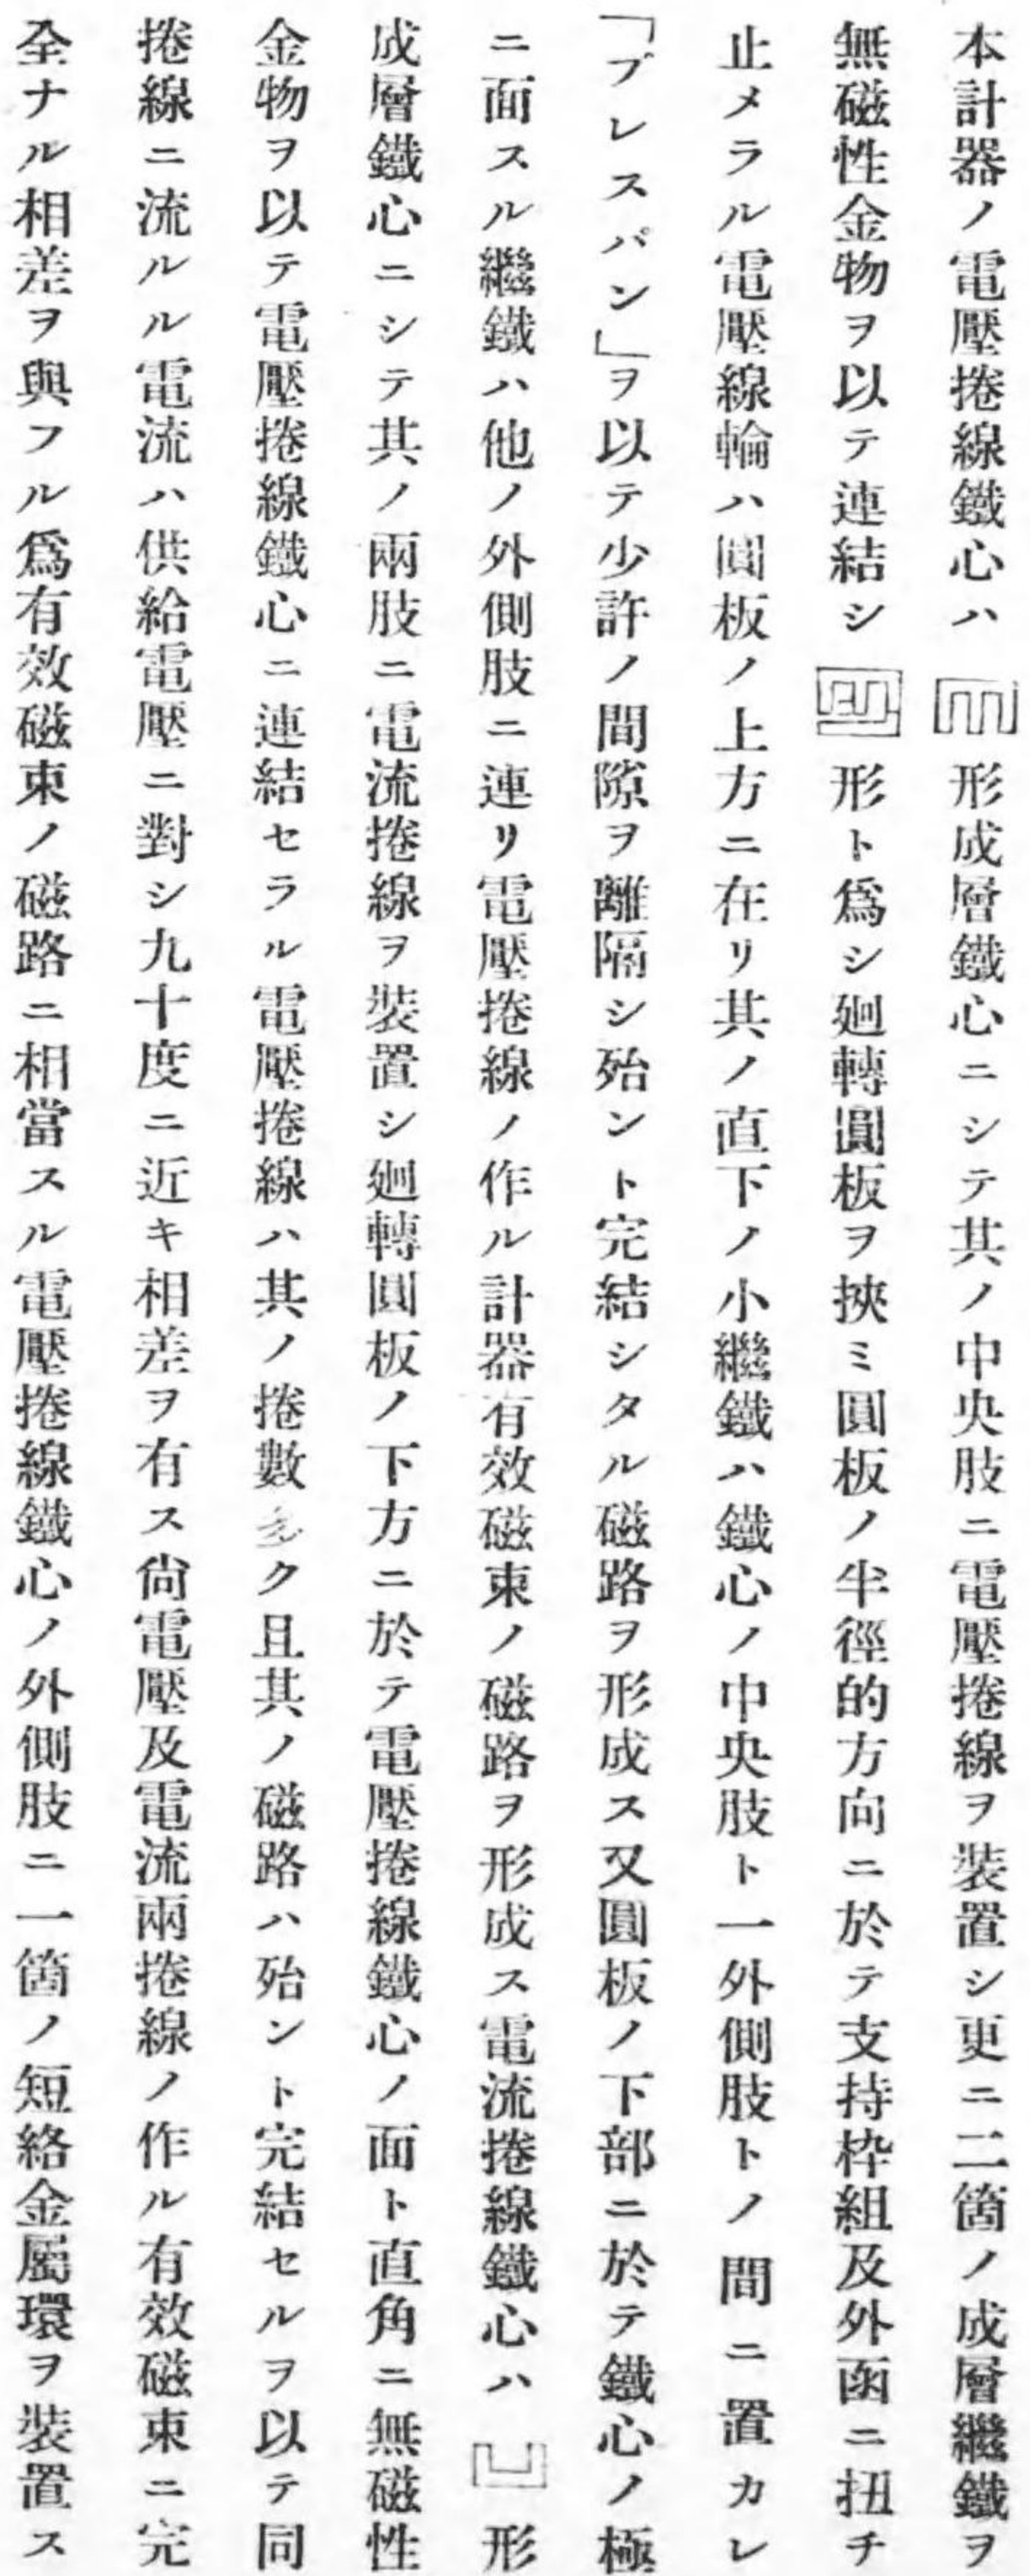 本計器ノ電壓捲線鐵心ハ形成層鐵心ニシテ其ノ中央肢ニ電壓捲線ヲ裝置シ更ニ二箇ノ成層繼鐵ヲ
無磁性金物ヲ以テ連結シ形ト爲シ廻轉圓板ヲ挾ミ圓板ノ半徑的方向ニ於テ支持枠組及外函ニ扭チ
止メラル電壓線輪ハ圓板ノ上方ニ在リ其ノ直下ノ小繼鐵ハ鐵心ノ中央肢ト一外側肢トノ間ニ置カレ
「プレスパン」ヲ以テ少許ノ間隙ヲ離隔シ殆ント完結シタル磁路ヲ形成ス又圓板ノ下部ニ於テ鐵心ノ極
ニ面スル繼鐵ハ他ノ外側肢ニ連リ電壓捲線ノ作ル計器有效磁束ノ磁路ヲ形成ス電流捲線鐵心ハ形
成層鐵心ニシテ其ノ兩肢ニ電流捲線ヲ裝置シ廻轉圓板ノ下方ニ於テ電壓捲線鐵心ノ面ト直角ニ無磁性
金物ヲ以テ電壓捲線鐵心ニ連結セラル電壓捲線ハ其ノ捲數多ク且其ノ磁路ハ殆ント完結セルヲ以テ同
捲線ニ流ルル電流ハ供給電壓ニ對シ九十度ニ近キ相差ヲ有ス尙電壓及電流兩捲線ノ作ル有效磁束ニ完
全ナル相差ヲ與フル爲有效磁束ノ磁路ニ相當スル電壓捲線鐵心ノ外側肢ニ一箇ノ短絡金屬環ヲ裝置ス